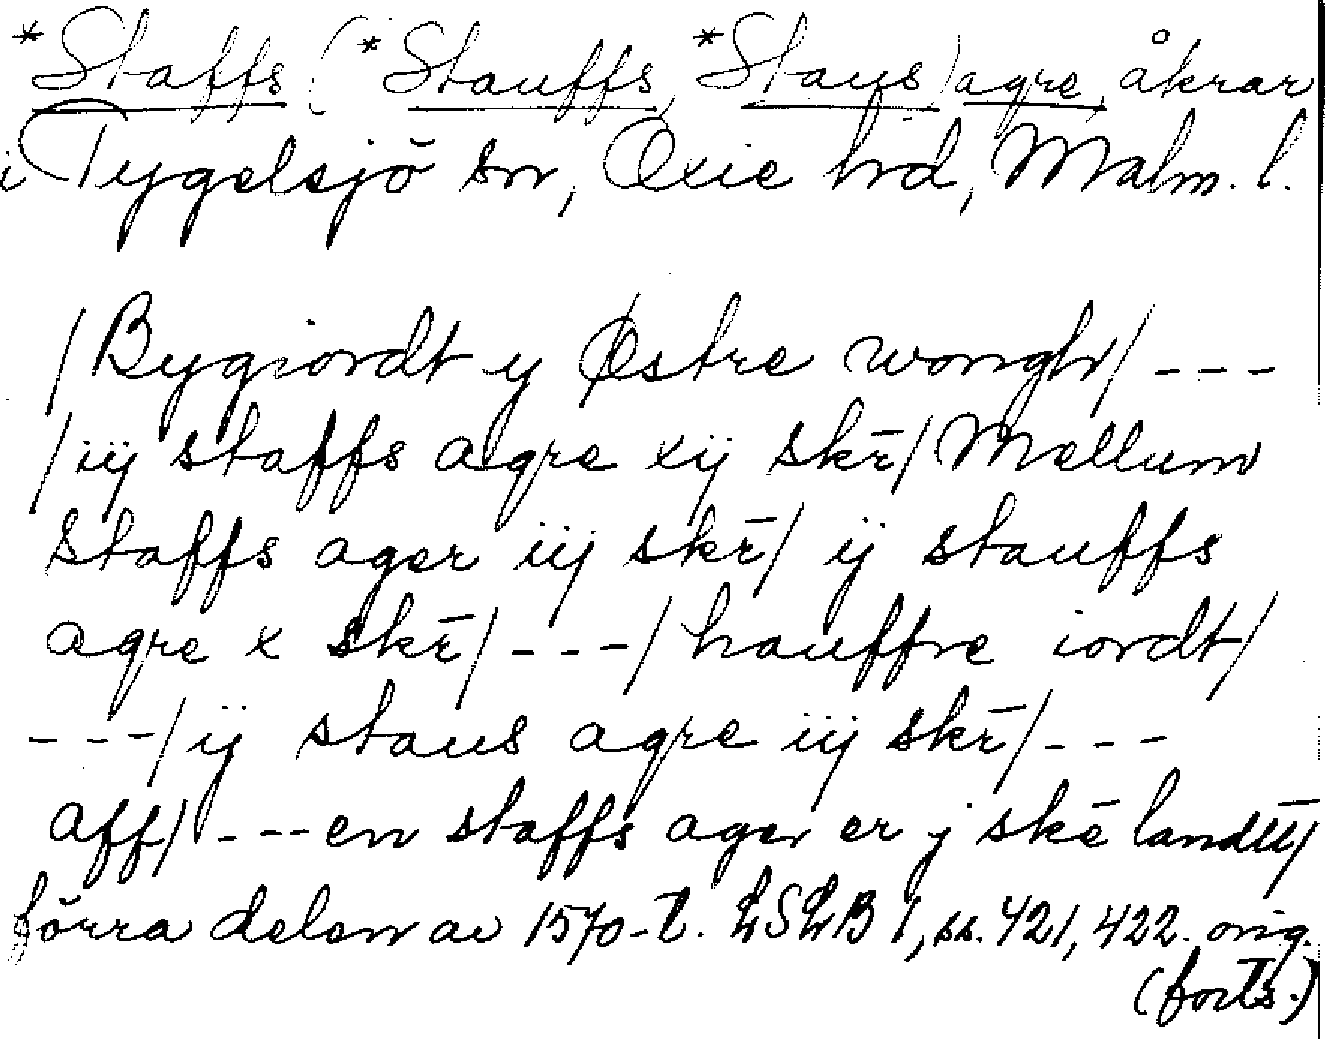 *Staffs (*Stauffs, *Staus) agre, åkrar
i Tygelsjö sn, Oxie hd, Malm. l.
/Bygiordt y Østre wongh/ ---
/iij staffs agre xij skr̄/ Mellum
staffs ager iij skr̄/ ij stauffs
agre x skr̄/ ---/ hauffre iordt/
---/ ij staus agre iij skr̄/ ---
aff/ --- en staffs ager er j skē
förra delen av 1570-t. LSLB 1, ss. 421, 422. orig.
(forts.)